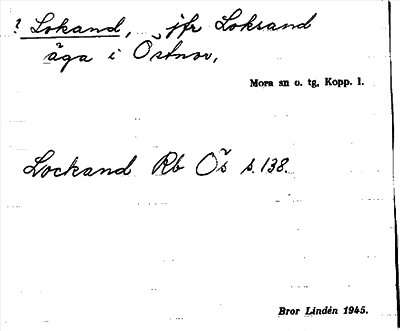 ? Lokand, jfr Loksand
äga i Östnor,
Mora sn o. tg, Kopp. l.
Lockand Rb Ös s. 138.
Bror Lindén 1945.